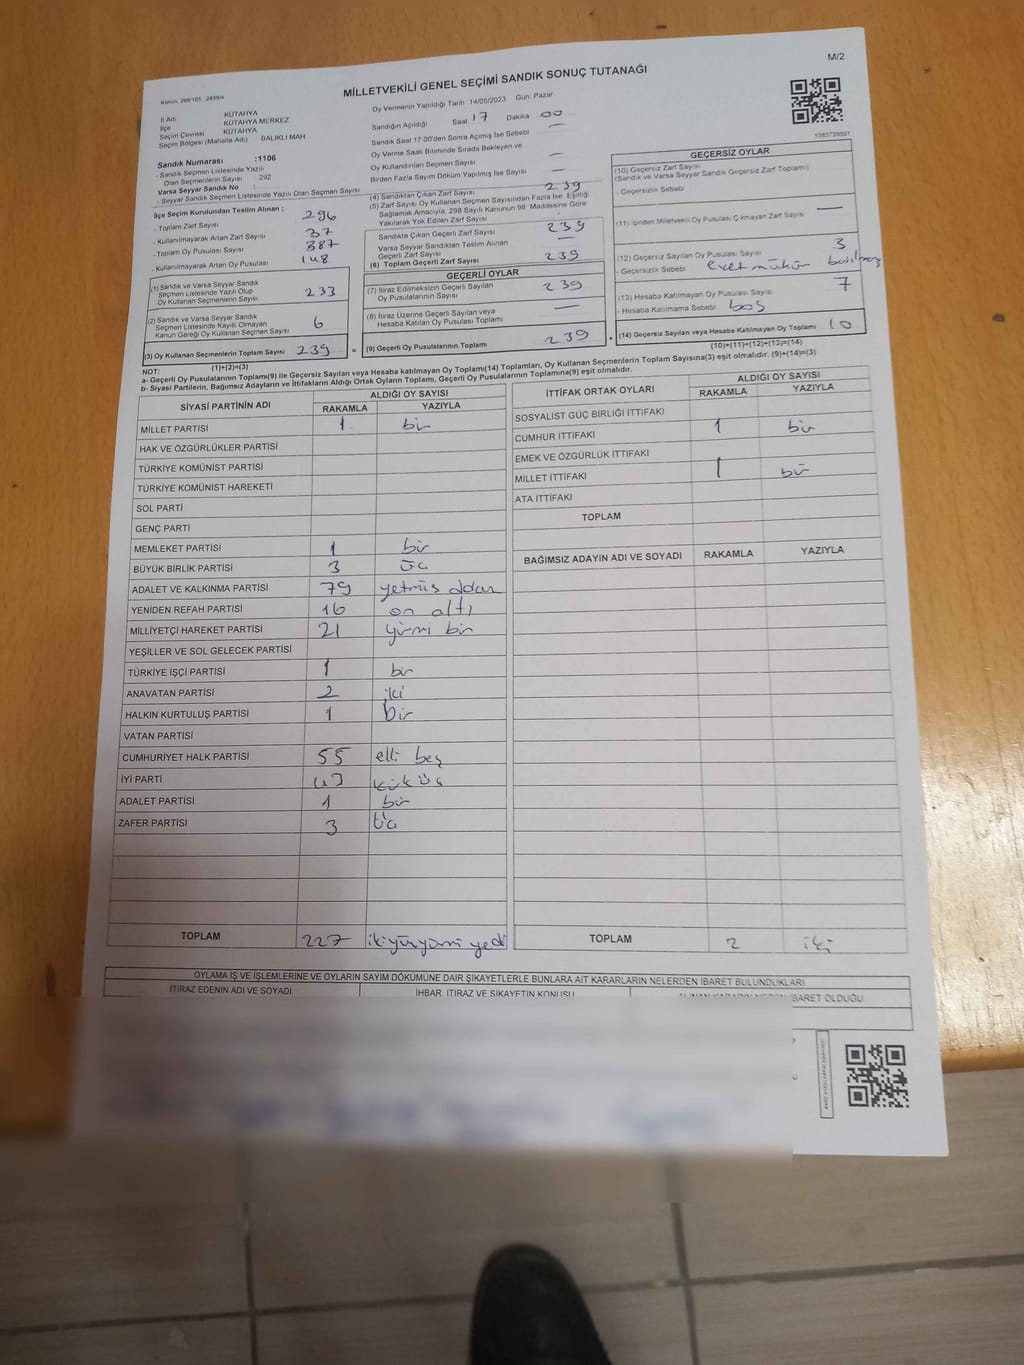 M/2
MİLLETVEKİLİ GENEL SEÇİMİ SANDIK SONUÇ TUTANAĞI
1083729501
İl Adı KÜTAHYA
İlçe KÜTAHYA MERKEZ
Seçim Çevresi KÜTAHYA
Seçim Bölgesi (Mahalle Adı) BALIKLI MAH
Sandık Numarası :1106
- Sandık Seçmen Listesinde Yazılı
Olan Seçmenlerin Sayısı 292
Varsa Seyyar Sandık No :
- Seyyar Sandık Seçmen Listesinde Yazılı Olan Seçmen Sayısı
İlçe Seçim Kurulundan Teslim Alınan ;
- Toplam Zarf Sayısı 296
- Kullanılmayarak Artan Zarf Sayısı 37
- Toplam Oy Pusulası Sayısı 387
- Kullanılmayarak Artan Oy Pusulası 148
(1) Sandık ve Varsa Seyyar Sandık
Seçmen Listesinde Yazılı Olup
Oy Kullanan Seçmenlerin Sayısı 233
(2) Sandık ve Varsa Seyyar Sandık
Seçmen Listesinde Kayıtlı Olmayan
Kanun Gereği Oy Kullanan Seçmen Sayısı 6
(3) Oy Kullanan Seçmenlerin Toplam Sayısı 239
(1)+(2)=(3)
Oy Vermenin Yapıldığı Tarih 14/05/2023 Gün: Pazar
Sandığın Açıldığı Saat 17 Dakika 00
Sandık Saat 17.00'den Sonra Açımış İse Sebebi —
Oy Verme Saati Bitiminde Sırada Bekleyen ve
Oy Kullandırılan Seçmen Sayısı —
Birden Fazla Sayım Döküm Yapılmış İse Sayısı —
(4) Sandıktan Çıkan Zarf Sayısı 239
(5) Zarf Sayısı Oy Kullanan Seçmen Sayısından Fazla İse, Eşitliği
Sağlamak Amacıyla, 298 Sayılı Kanunun 98. Maddesine Göre
Yakılarak Yok Edilen Zarf Sayısı
Sandıkta Çıkan Geçerli Zarf Sayısı 239
Varsa Seyyar Sandıktan Teslim Alınan
Geçerli Zarf Sayısı —
(6) Toplam Geçerli Zarf Sayısı 239
GEÇERLİ OYLAR
(7) İtiraz Edilmeksizin Geçerli Sayılan
Oy Pusulalarının Sayısı 239
(8) İtiraz Üzerine Geçerli Sayılan veya
Hesaba Katılan Oy Pusulası Toplamı —
= (9) Geçerli Oy Pusulalarının Toplamı 239
GEÇERSİZ OYLAR
(10) Geçersiz Zarf Sayısı
(Sandık ve Varsa Seyyar Sandık Geçersiz Zarf Toplamı)
- Geçersizlik Sebebi
(11) İçinden Milletvekili Oy Pusulası Çıkmayan Zarf Sayısı —
(12) Geçersiz Sayılan Oy Pusulası Sayısı 3
- Geçersizlik Sebebi evet mühür
(13) Hesaba Katılmayan Oy Pusulası Sayısı 7
- Hesaba Katılmama Sebebi boş
+ (14) Geçersiz Sayılan veya Hesaba Katılmayan Oy Toplamı 10
(10)+(11)+(12)+(13)=(14)
NOT:
a- Geçerli Oy Pusulalarının Toplamı(9) ile Geçersiz Sayılan veya Hesaba katılmayan Oy Toplamı(14) Toplamları, Oy Kullanan Seçmenlerin Toplam Sayısına(3) eşit olmalıdır. (9)+(14)=(3)
b- Siyasi Partilerin, Bağımsız Adayların ve İttifakların Aldığı Ortak Oyların Toplamı, Geçerli Oy Pusulalarının Toplamına(9) eşit olmalıdır.
SİYASİ PARTİNİN ADI ALDIĞI OY SAYISI
RAKAMLA YAZIYLA
MİLLET PARTİSİ 1 bir
HAK VE ÖZGÜRLÜKLER PARTİSİ
TÜRKİYE KOMÜNİST PARTİSİ
TÜRKİYE KOMÜNİST HAREKETİ
SOL PARTİ
GENÇ PARTİ
MEMLEKET PARTİSİ 1 bir
BÜYÜK BİRLİK PARTİSİ 3 üç
ADALET VE KALKINMA PARTİSİ 79 yetmiş dokuz
YENİDEN REFAH PARTİSİ 16 on altı
MİLLİYETÇİ HAREKET PARTİSİ 21 yirmi bir
YEŞİLLER VE SOL GELECEK PARTİSİ
TÜRKİYE İŞÇİ PARTİSİ 1 bir
ANAVATAN PARTİSİ 2 iki
HALKIN KURTULUŞ PARTİSİ 1 bir
VATAN PARTİSİ
CUMHURİYET HALK PARTİSİ 55 elli beş
İYİ PARTİ 43 kırk üç
ADALET PARTİSİ 1 bir
ZAFER PARTİSİ 3 üç
TOPLAM 227 iki yüz yirmi yedi
İTTİFAK ORTAK OYLARI ALDIĞI OY SAYISI
RAKAMLA YAZIYLA
SOSYALİST GÜÇ BİRLİĞİ İTTİFAKI
CUMHUR İTTİFAKI 1 bir
EMEK VE ÖZGÜRLÜK İTTİFAKI
MİLLET İTTİFAKI 1 bir
ATA İTTİFAKI
TOPLAM
BAĞIMSIZ ADAYIN ADI VE SOYADI RAKAMLA YAZIYLA
TOPLAM 2 iki
OYLAMA İŞ VE İŞLEMLERİNE VE OYLARIN SAYIM DÖKÜMÜNE DAİR ŞİKAYETLERLE BUNLARA AİT KARARLARIN NELERDEN İBARET BULUNDUKLARI
İTİRAZ EDENİN ADI VE SOYADI İHBAR, İTİRAZ VE ŞİKAYETİN KONUSU ALINAN KARARIN NEDEN İBARET OLDUĞU